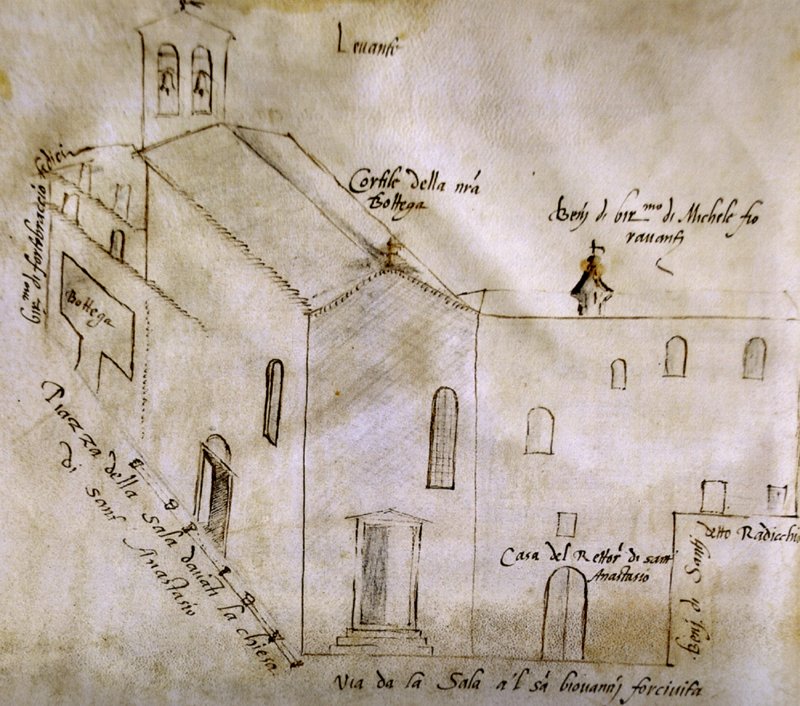 Levante
Cortile della nrã
Bottega
Benj di bir.mo di Michele fio
ravanti
bir.mo di fortebraccio
Bottega
Piazza della Sala davãti la chiesa
di sant Anastasio
Casa del Rettor di sant
Anastasio
detto Radicchio
Benj di Santj
Via da la Sala a'l sã Giovannj forcivita